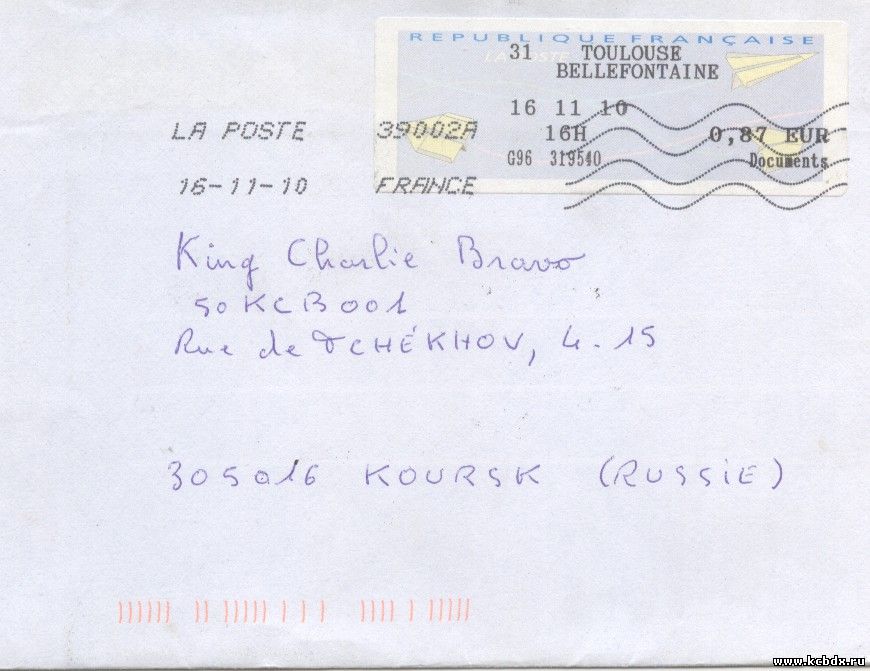 REPUBLIQUE FRANÇAISE
LA POSTE
31 TOULOUSE
BELLEFONTAINE
16 11 10
LA POSTE 39002A
16H 0,87 EUR
G96 319540 Documents
16-11-10 FRANCE
King Charlie Bravo
50KCB001
Rue de TCHÉKHOV, 4.15
305016 KOURSK (RUSSIE)
www.kcbdx.ru